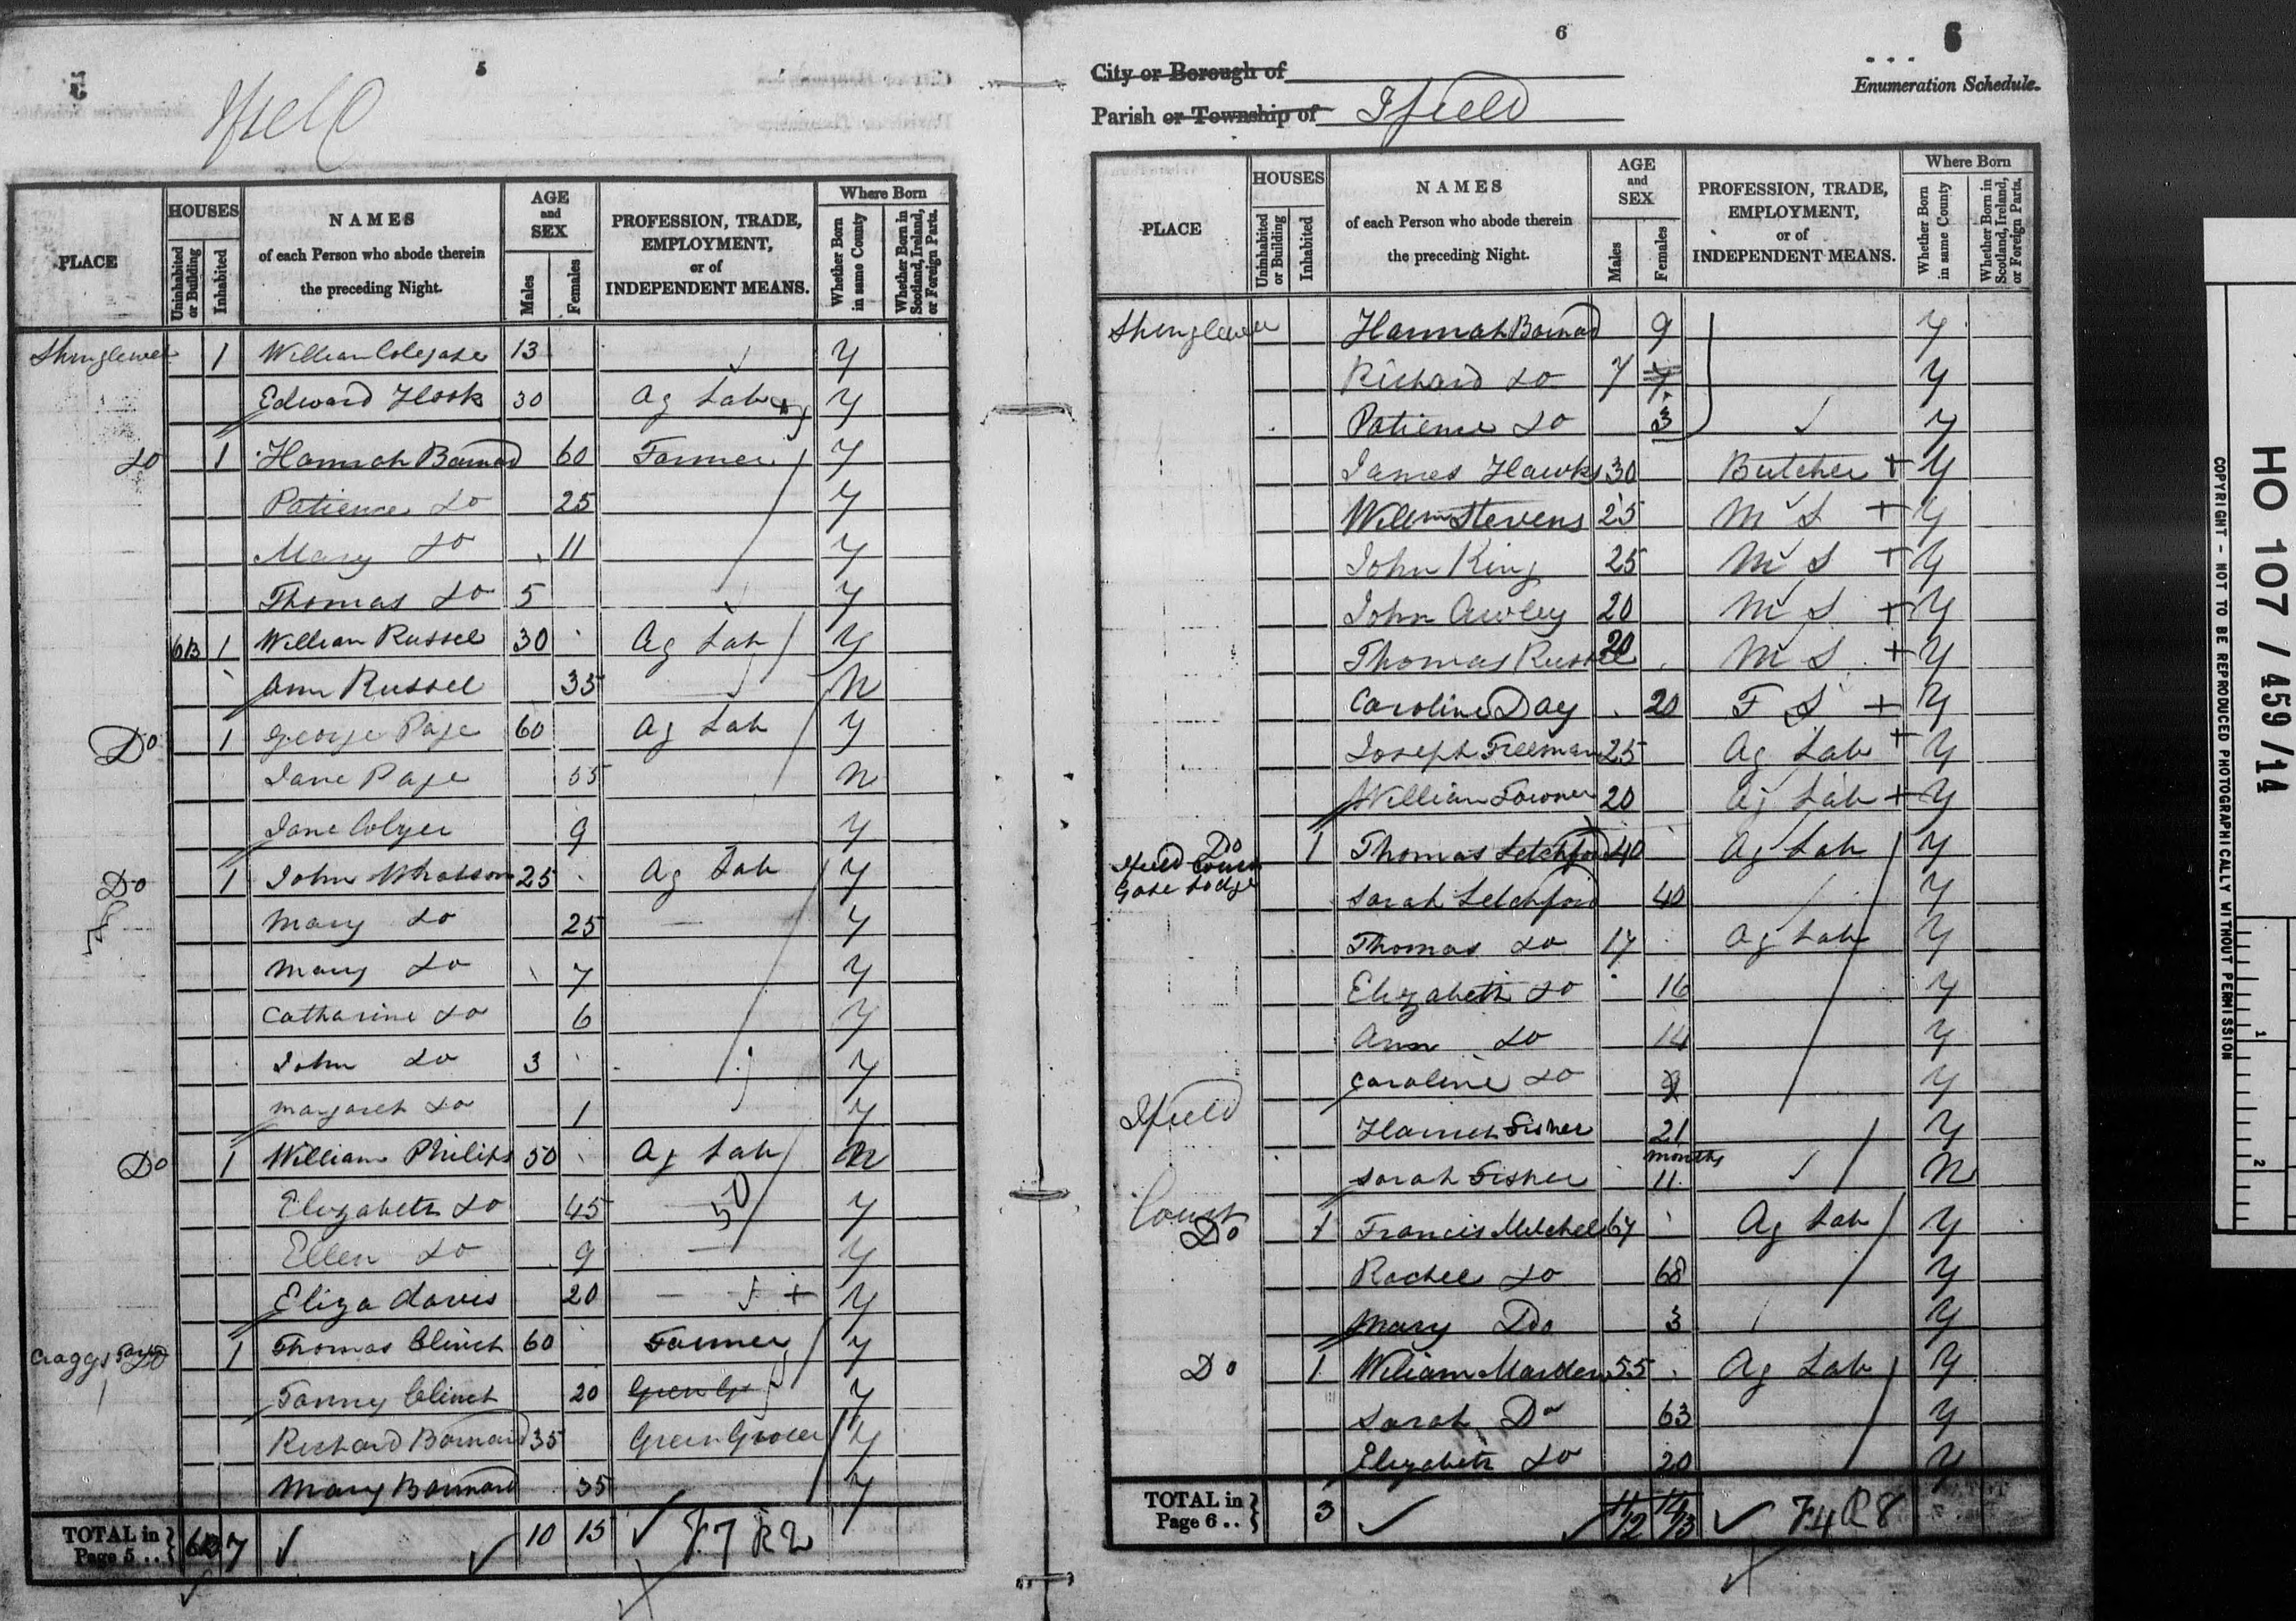 5
Ifield
PLACE
HOUSES
Uninhabited or Building
Inhabited
NAMES
of each Person who abode therein
the preceding Night.
AGE
and
SEX
Males
Females
PROFESSION, TRADE,
EMPLOYMENT,
or of
INDEPENDENT MEANS.
Where Born
Whether Born in same County
Whether Born in Scotland, Ireland, or Foreign Parts.
Shinglewell 1 William Colegate 13 Y
Edward Hook 30 Ag Lab + Y
Do 1 Hannah Barnard 60 Farmer Y
Patience Do 25 Y
Mary Do 11 Y
Thomas Do 5 Y
6B 1 William Russel 30 Ag Lab Y
Ann Russel 35 N
Do 1 George Page 60 Ag Lab Y
Jane Page 55 N
Jane Colyer 9 Y
Do 1 John Whatson 25 Ag Lab Y
Mary Do 25 Y
Mary Do 7 Y
Catharine Do 6 Y
John Do 3 Y
Margaret Do 1 Y
Do 1 William Philips 50 Ag Lab N
Elizabeth Do 45 50 Y
Ellen Do 9 Y
Eliza Davis 20 + Y
Craggs 1 Thomas Clinch 60 Farmer Y
Fanny Clinch 20 Green Gr Y
Richard Barnard 35 Green Grocer Y
Mary Barnard 35 Y
TOTAL in Page 5 .. 6B 7 10 15 F7 R2
6
6
City or Borough of
Enumeration Schedule.
Parish or Township of Ifield
PLACE
HOUSES
Uninhabited or Building
Inhabited
NAMES
of each Person who abode therein
the preceding Night.
AGE
and
SEX
Males
Females
PROFESSION, TRADE,
EMPLOYMENT,
or of
INDEPENDENT MEANS.
Where Born
Whether Born in same County
Whether Born in Scotland, Ireland, or Foreign Parts.
Shinglewell Hannah Barnard 9 Y
Richard Do 7 7 Y
Patience Do 3 Y
James Hawks 30 Butcher + Y
Willm Stevens 25 M S + Y
John King 25 M S + Y
John Awley 20 M S + Y
Thomas Russel 20 M S + Y
Caroline Day 20 F S + Y
Joseph Freeman 25 Ag Lab + Y
William 20 Ag Lab + Y
Do
Ifield Court 1 Thomas Letchford 40 Ag Lab Y
Gate Lodge
Sarah Letchford 40 Y
Thomas Do 17 Ag Lab Y
Elizabeth Do 16 Y
Ann Do 14 Y
Caroline Do Y
Ifield Fisher 21 Y
months
Sarah Fisher 11 N
Court
Do 1 Francis Mitchell 67 Ag Lab Y
Rachel Do 68 Y
Mary Do 3 Y
Do 1 William Marden 55 Ag Lab Y
Sarah Do 63 Y
Elizabeth Do 20 Y
TOTAL in Page 6 .. 3 11/12 14/13 F4 R8
HO 107 / 459 / 14
COPYRIGHT - NOT TO BE REPRODUCED PHOTOGRAPHICALLY WITHOUT PERMISSION
1
2